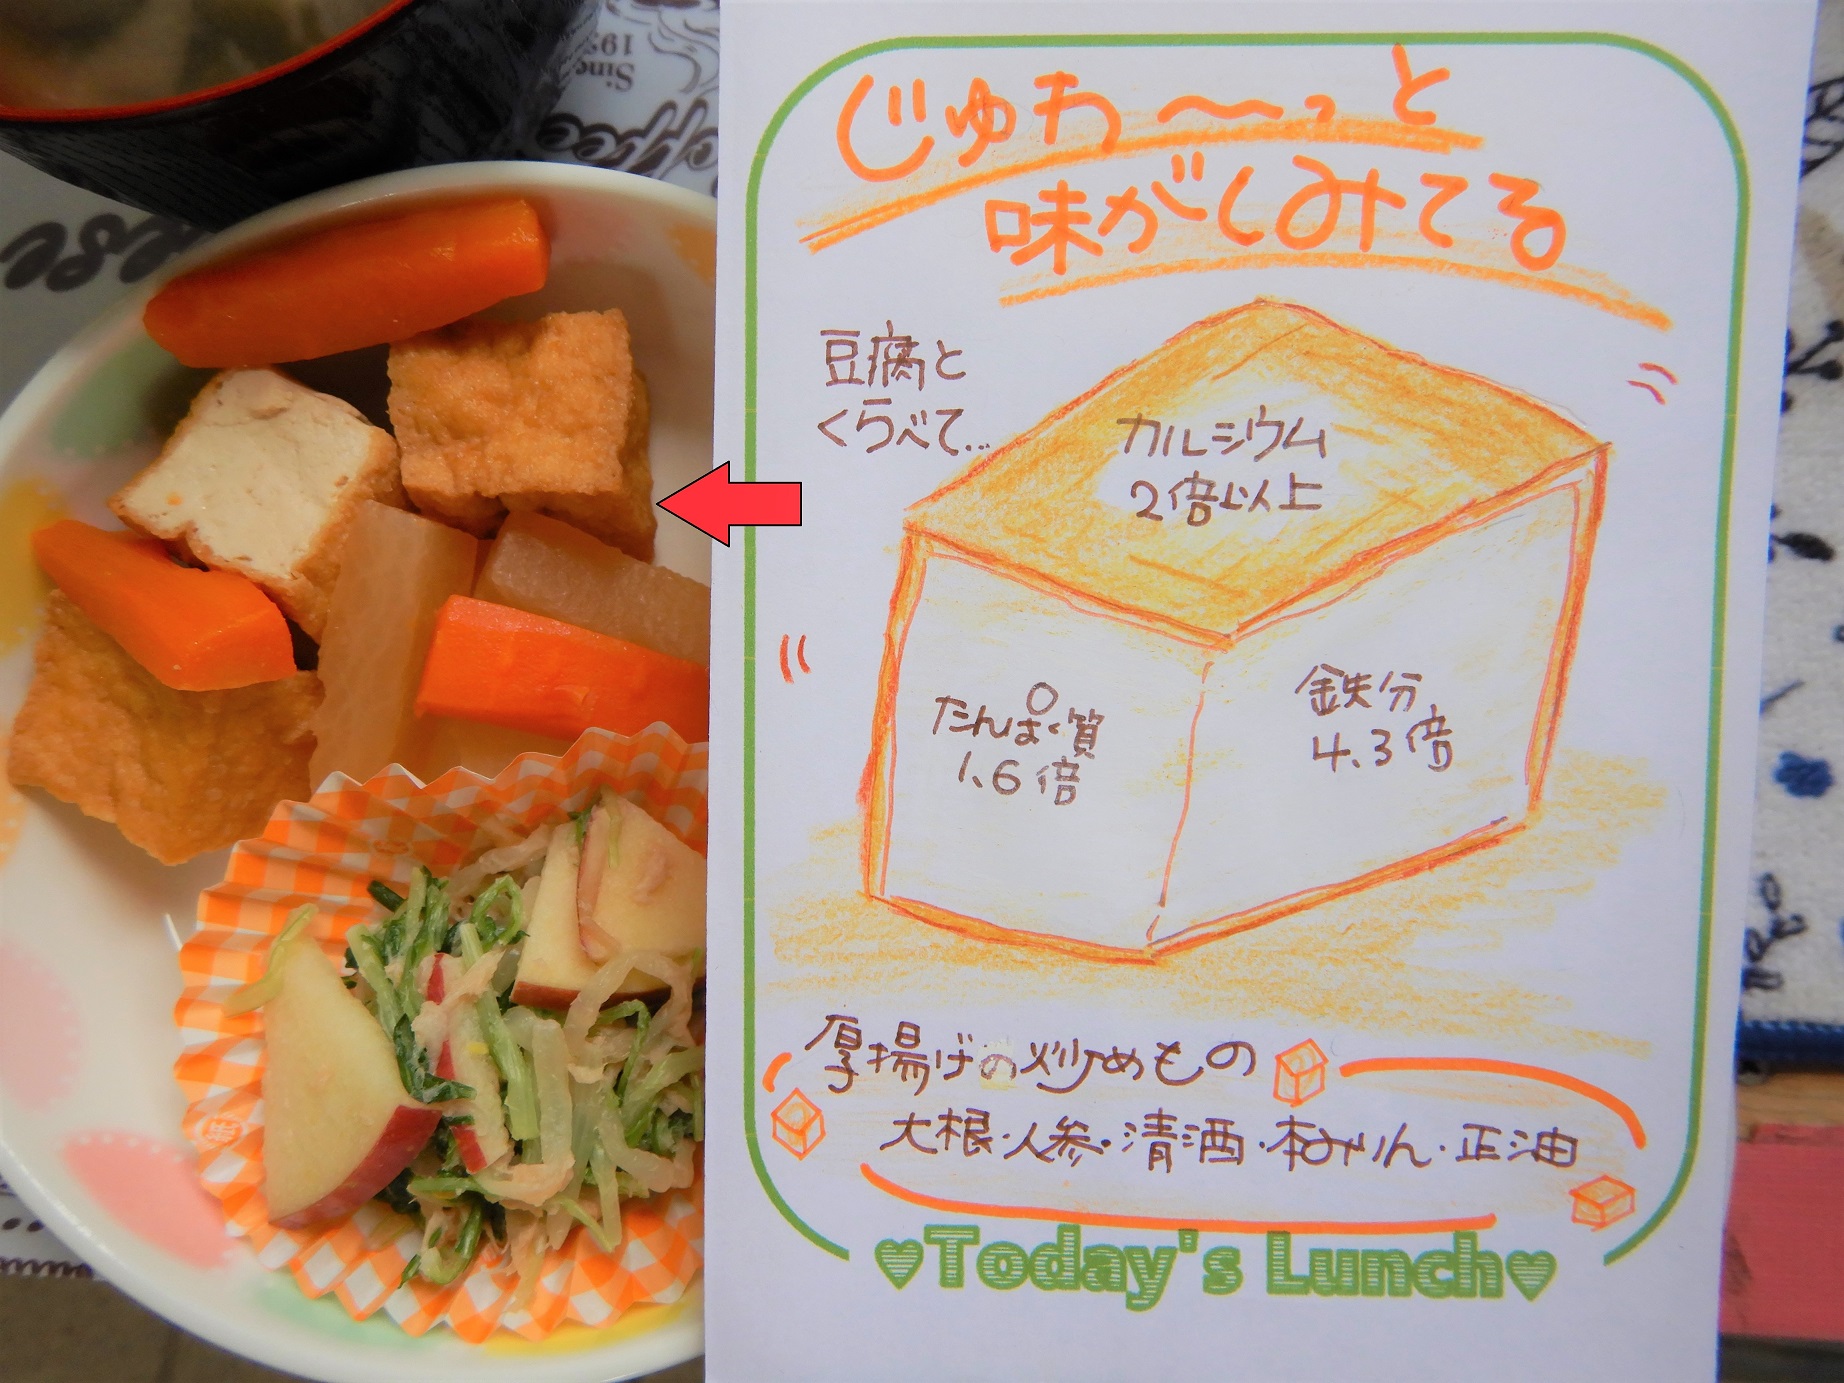 じゅわ〜〜っと
味がしみてる
豆腐と
くらべて…
カルシウム
2倍以上
たんぱく質
1.6倍
鉄分
4.3倍
厚揚げの炒めもの
大根・人参・清酒・本みりん・正油
♥Today's Lunch♥
Since
193
Coffee